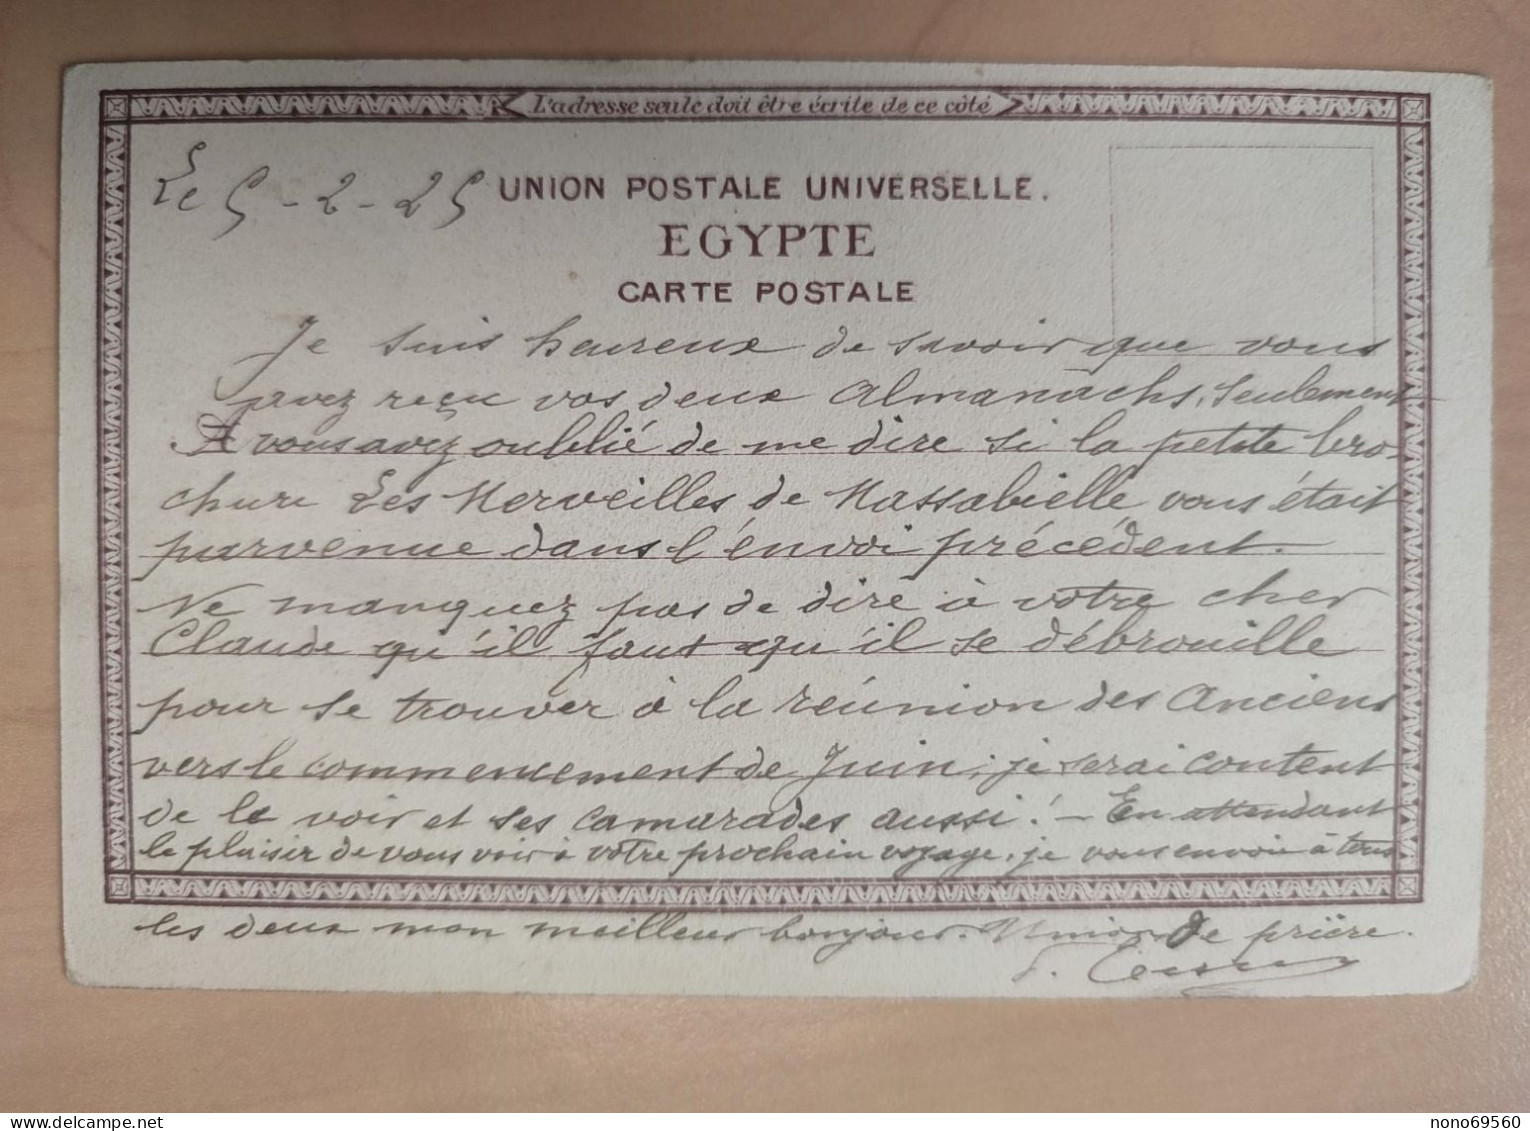 L'adresse seule doit être écrite de ce côté
Le 5-2-25
UNION POSTALE UNIVERSELLE.
EGYPTE
CARTE POSTALE
Je suis heureux de savoir que vous
avez reçu vos deux Almanachs, Seulement
vous avez oublié de me dire si la petite bro-
chure Les Merveilles de Massabielle vous était
parvenue dans l'énvoi précédent.
Ne manquez pas de dire à votre cher
Claude qu'il faut qu'il se débrouille
pour se trouver à la réunion des Anciens
vers le commencement de Juin; je serai content
de le voir et ses camarades aussi! - En attendant
le plaisir de vous voir à votre prochain voyage, je vous envoie à tous
les deux mon meilleur bonjour. Union de prière.
nono69560